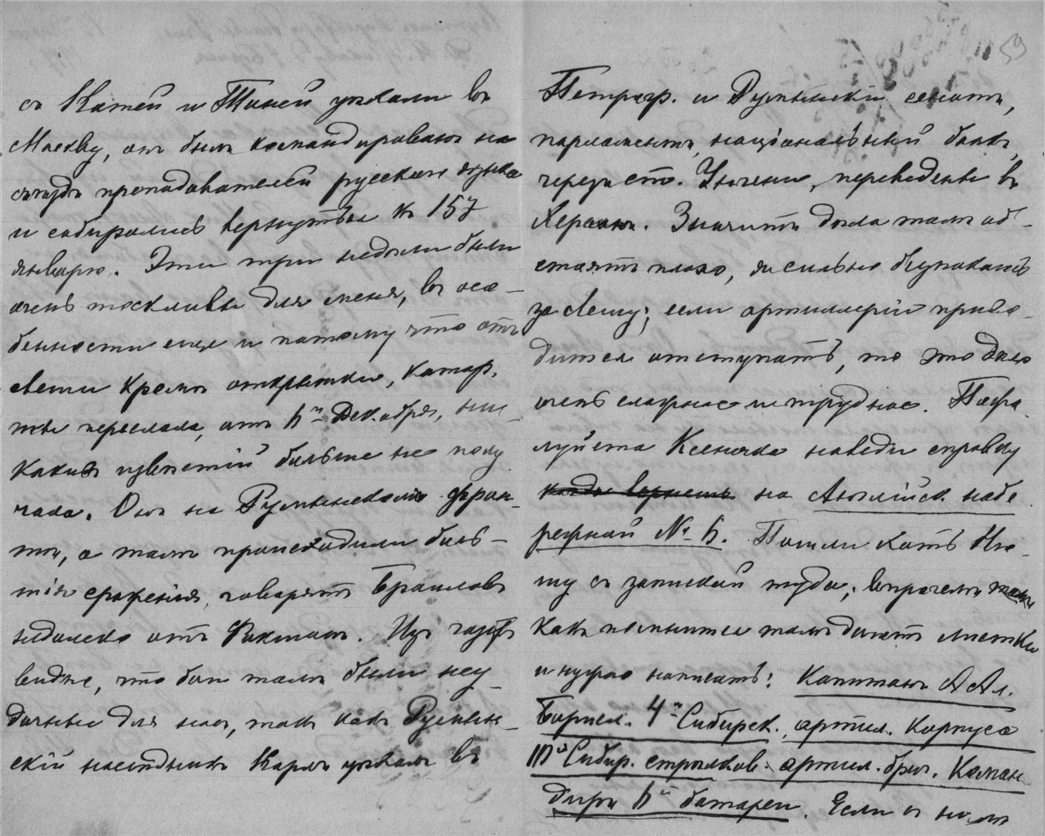 съ Катей и Таней уѣхали въ
Москву, онъ былъ командированъ на
съѣздъ преподавателей русскаго языка
и собирались вернуться къ 15му
январю. Эти три недѣли были
очень тоскливы для меня, въ осо-
бенности еще и потому что отъ
кромѣ открытки, котор.
ты переслала, отъ 6го Декабря, ни
какихъ извѣстій больше не полу
чала. Онъ на Румынскомъ фрон-
тѣ, а тамъ происходили боль-
шія сраженія, говорятъ Браиловъ
недалеко отъ Фокшанъ. Изъ газетъ
видно, что бои тамъ были неу
дачные для насъ, такъ какъ Румын-
скій наслѣдникъ Карлъ уѣхалъ въ
59
Петрогр. и Румынскій сенатъ,
парламентъ, національный банкъ,
переведены въ
Херсонъ. Значитъ дѣла тамъ об-
стоятъ плохо, я сильно безпокоюсь
за Лешу; если артиллеріи прихо-
дится отступать, то это дѣло
очень опасное и трудное. Пожа-
луйста Ксеничка наведи справку
на Англійск. набе
режной № 6. Пошли хоть Ню-
шу съ запиской туда, впрочемъ
какъ помнится тамъ даютъ листки
и нужно написать: Капитанъ А Ал.
4й Сибирск. артил. Корпуса
Сибир. стрѣлков. артил. бриг. Коман
диръ 6й батареи. Если о немъ